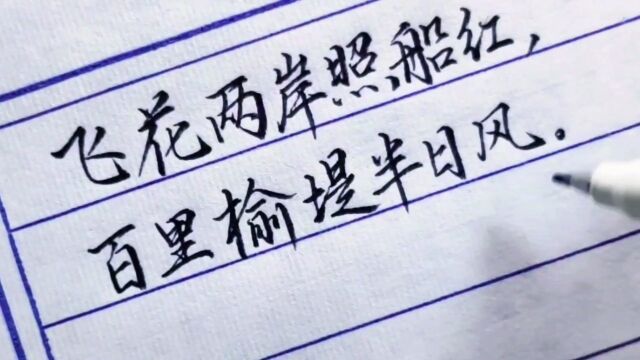 飞花两岸照船红，
百里榆堤半日风。